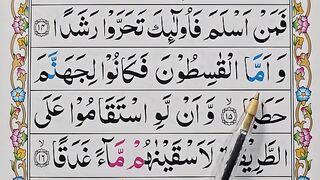 فَمَنْ اَسْلَمَ فَاُولٰٓئِكَ تَحَرَّوْا رَشَدًا ۝۱۴
وَ اَمَّا الْقٰسِطُوْنَ فَكَانُوْا لِجَهَنَّمَ
حَطَبًا ۝۱۵ وَّ اَنْ لَّوِ اسْتَقَامُوْا عَلَى
الطَّرِيْقَةِ لَاَسْقَيْنٰهُمْ مَّآءً غَدَقًا ۝۱۶